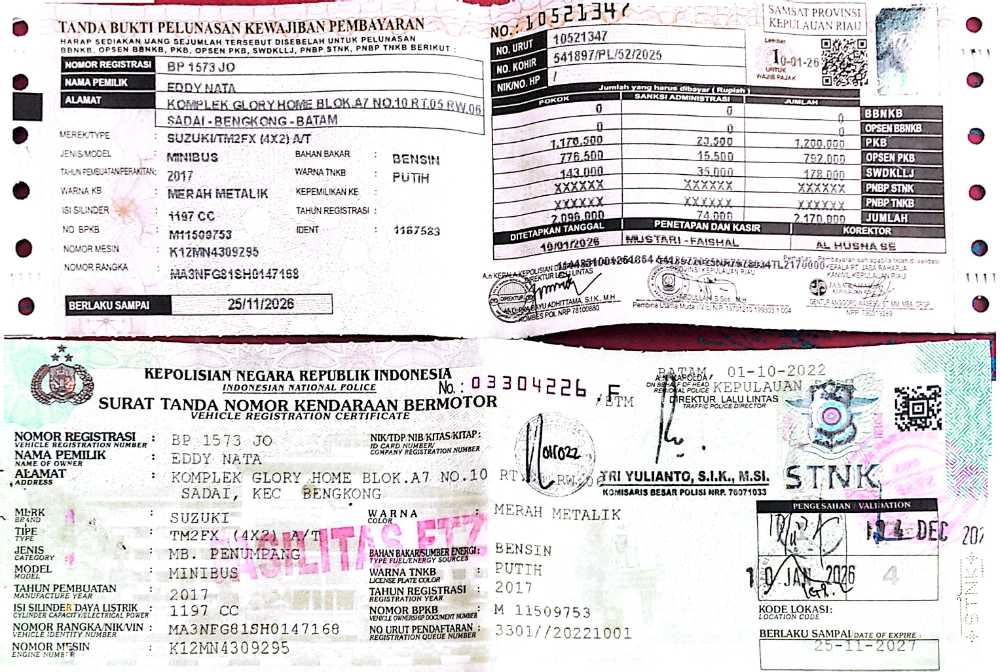 TANDA BUKTI PELUNASAN KEWAJIBAN PEMBAYARAN
HARAP SEDIAKAN UANG SEJUMLAH TERSEBUT DISEBELAH UNTUK PELUNASAN
BBNKB, OPSEN BBNKB, PKB, OPSEN PKB, SWDKLLJ, PNBP STNK, PNBP TNKB BERIKUT :
NOMOR REGISTRASI BP 1573 JO
NAMA PEMILIK EDDY NATA
ALAMAT KOMPLEK GLORY HOME BLOK.A7 NO.10 RT.05 RW.06
SADAI - BENGKONG - BATAM
MEREK/TYPE : SUZUKI/TM2FX (4X2) A/T
JENIS/MODEL : MINIBUS BAHAN BAKAR : BENSIN
TAHUN PEMBUATAN/PERAKITAN : 2017 WARNA TNKB : PUTIH
WARNA KB : MERAH METALIK KEPEMILIKAN KE :
ISI SILINDER : 1197 CC TAHUN REGISTRASI :
NO BPKB : M11509753 IDENT : 1167523
NOMOR MESIN : K12MN4309295
NOMOR RANGKA : MA3NFG81SH0147168
BERLAKU SAMPAI 25/11/2026
NO.: 10521347
NO. URUT 10521347
NO. KOHIR 541897/PL/52/2025
NIK/NO. HP /
SAMSAT PROVINSI
KEPULAUAN RIAU
Lembar
10-01-26
UNTUK
WAJIB PAJAK
Jumlah yang harus dibayar ( Rupiah )
POKOK SANKSI ADMINISTRASI JUMLAH
0 0 0 BBNKB
0 0 0 OPSEN BBNKB
1,176,500 23,500 1,200,000 PKB
776,500 15,500 792,000 OPSEN PKB
143,000 35,000 178,000 SWDKLLJ
XXXXXX XXXXXX XXXXXX PNBP STNK
XXXXXX XXXXXX XXXXXX PNBP TNKB
2,096,000 74,000 2,170,000 JUMLAH
DITETAPKAN TANGGAL PENETAPAN DAN KASIR KOREKTOR
10/01/2026 MUSTARI - FAISHAL AL HUSNA SE
DIREKTUR LALU LINTAS
KOMBES POL NRP 78100880
KEPOLISIAN NEGARA REPUBLIK INDONESIA
INDONESIAN NATIONAL POLICE
No.: 03304226 F
SURAT TANDA NOMOR KENDARAAN BERMOTOR
VEHICLE REGISTRATION CERTIFICATE
/BTM
BATAM, 01-10-2022
A.N KAPOLDA
ON BEHALF OF HEAD REGIONAL POLICE
KEPULAUAN
DIREKTUR LALU LINTAS
TRAFFIC POLICE DIRECTOR
TRI YULIANTO, S.I.K., M.SI.
KOMISARIS BESAR POLISI NRP. 76071033
STNK
NOMOR REGISTRASI : BP 1573 JO
VEHICLE REGISTRATION NUMBER
NIK/TDP NIB/KITAS/KITAP :
ID CARD NUMBER/
COMPANY REGISTRATION NUMBER
NAMA PEMILIK : EDDY NATA
NAME OF OWNER
ALAMAT : KOMPLEK GLORY HOME BLOK.A7 NO.10 RT.
ADDRESS
SADAI, KEC BENGKONG
MERK : SUZUKI WARNA : MERAH METALIK
BRAND COLOR
TIPE : TM2FX (4X2) A/T
TYPE
JENIS : MB. PENUMPANG BAHAN BAKAR/SUMBER ENERGI : BENSIN
CATEGORY TYPE FUEL/ENERGY SOURCES
MODEL : MINIBUS WARNA TNKB : PUTIH
MODEL LICENSE PLATE COLOR
TAHUN PEMBUATAN : 2017 TAHUN REGISTRASI : 2017
MANUFACTURE YEAR REGISTRATION YEAR
ISI SILINDER/DAYA LISTRIK : 1197 CC NOMOR BPKB : M 11509753
CYLINDER CAPACITY/ELECTRICAL POWER VEHICLE OWNERSHIP DOCUMENT NUMBER
NOMOR RANGKA/NIK/VIN : MA3NFG81SH0147168 NO URUT PENDAFTARAN : 3301//20221001
VEHICLE IDENTITY NUMBER REGISTRATION QUEUE NUMBER
NOMOR MESIN : K12MN4309295
ENGINE NUMBER
PENGESAHAN / VALIDATION
DEC 202
10 JAN 2026
4
KODE LOKASI:
LOCATION CODE
BERLAKU SAMPAI DATE OF EXPIRE :
25-11-2027
STNK